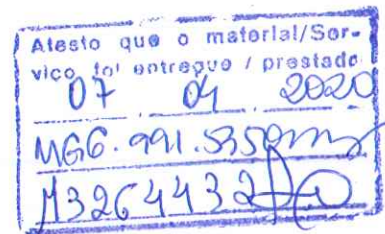 Atesto que o material/Ser-
viço foi entregue / prestado
07 04 2020
MG6.991.535
M3264432